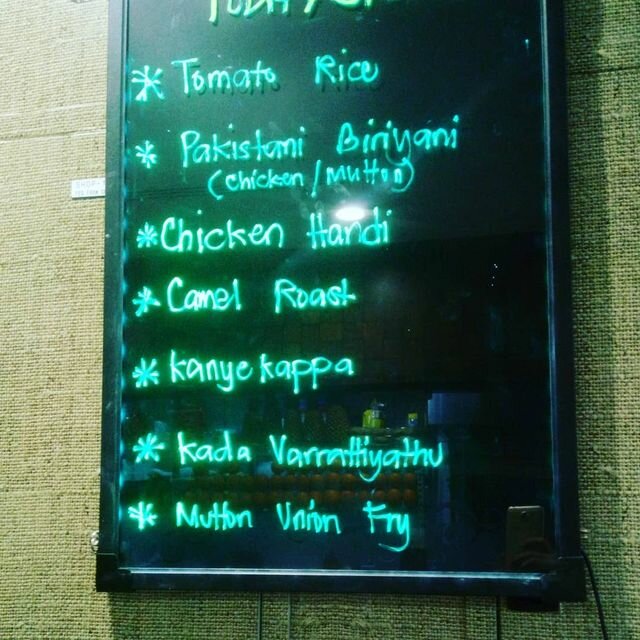 * Tomato Rice
* Pakistani Biriyani
(Chicken / Mutton)
* Chicken Handi
* Camel Roast
* Kanye kappa
* Kada Varrattiyathu
* Mutton Union Fry